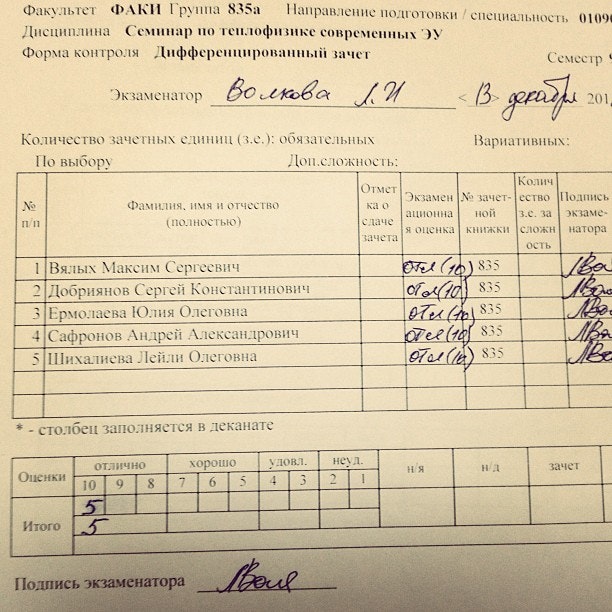 Факультет ФАКИ Группа 835а Направление подготовки / специальность 01090
Дисциплина Семинар по теплофизике современных ЭУ
Форма контроля Дифференцированный зачет Семестр 9
Экзаменатор Волкова Л.И <13> декабря 201
Количество зачетных единиц (з.е.): обязательных Вариативных:
По выбору Доп.сложность:
№ п/п Фамилия, имя и отчество (полностью) Отметка о сдаче зачета Экзаменационная оценка № зачетной книжки Количество з.е. за сложность Подпись экзаменатора
1 Вялых Максим Сергеевич отл(10) 835
2 Добриянов Сергей Константинович отл(10) 835
3 Ермолаева Юлия Олеговна отл(10) 835
4 Сафронов Андрей Александрович отл(10) 835
5 Шихалиева Лейли Олеговна отл(10) 835
* - столбец заполняется в деканате
Оценки отлично хорошо удовл. неуд. н/я н/д зачет
10 9 8 7 6 5 4 3 2 1
5
Итого 5
Подпись экзаменатора